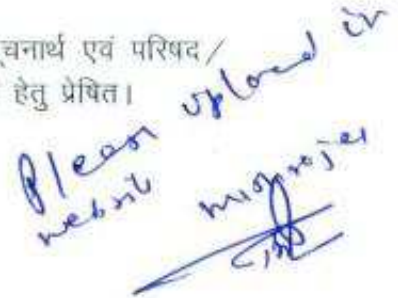 चनार्थ एवं परिषद/
हेतु प्रेषित।
Please upload in
website